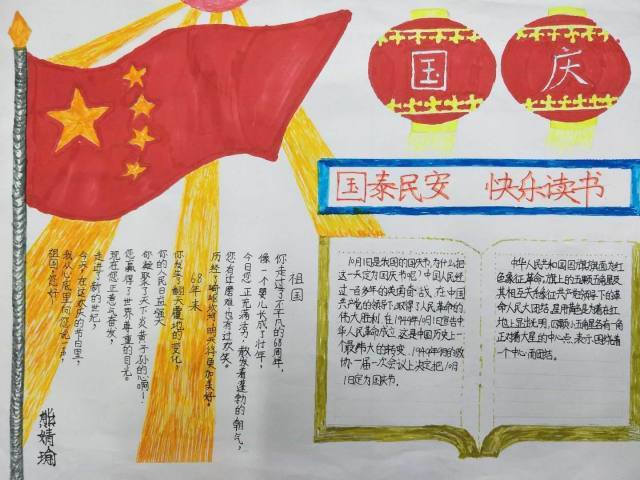 国庆
国泰民安 快乐读书
祖国
你走过了不平凡的68周年，
像一个婴儿长成了壮年，
今日您正充满活，散发着蓬勃的朝气，
您有过磨难也有过欢笑。
历经了
明天将更加美好。
68年来
你发生了翻天覆地的变化
你的人民日益强大
你凝聚了天下炎黄子孙的心啊！
您赢得了世界尊重的目光。
现在您正意气奋发，
走进了新的世纪，
今天，在这欢庆的节日里，
我从心底里向您说一声，
祖国，您好，
熊婧瑜
10月1日是我国的国庆节，为什么把
这一天定为国庆节呢？中国人民经
过一百多年的英勇奋战，在中国
共产党的领导下，取得了人民革命的
伟大胜利，在1949年10月1日宣告中
华人民共和成立，这是中国历史上一
个最伟大的转变。1949年
一届一次会议上决定把10月
1日定为国庆节。
中华人民共和国国旗旗面为红
色象征革命，旗上的五颗五角星及
其相互关系象征共产党领导下的革
命人民大团结，星用黄色是为着在红
地上显出光明，四颗小五角星各有一角
正对着大星的中心点，表示围绕着
一个中心而团结。